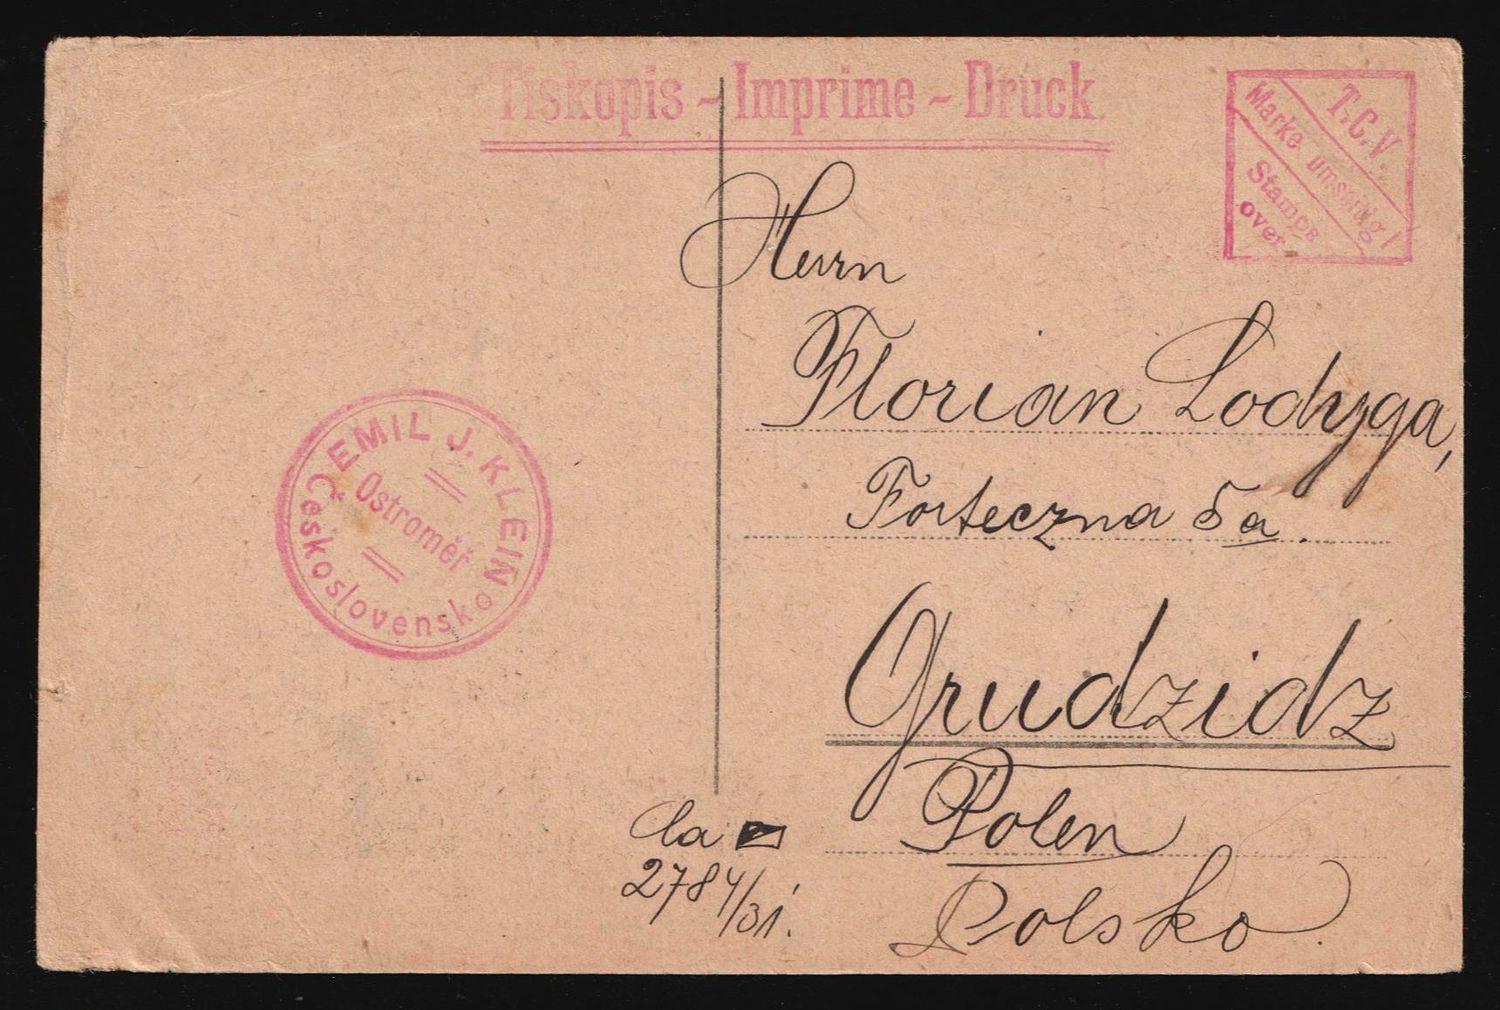 Tiskopis - Imprime - Druck.
T.C.V.
Marke umseitig!
Stamps
over
Herrn
Florian Lodyga,
Forteczna 5a.
Grudzidz
Polen
Polsko
EMIL J. KLEIN
Ostroměř
Československo
2784/31.